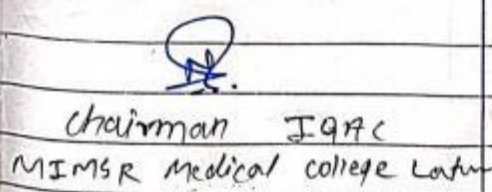 Chairman IQAC
MIMSR Medical college Latur